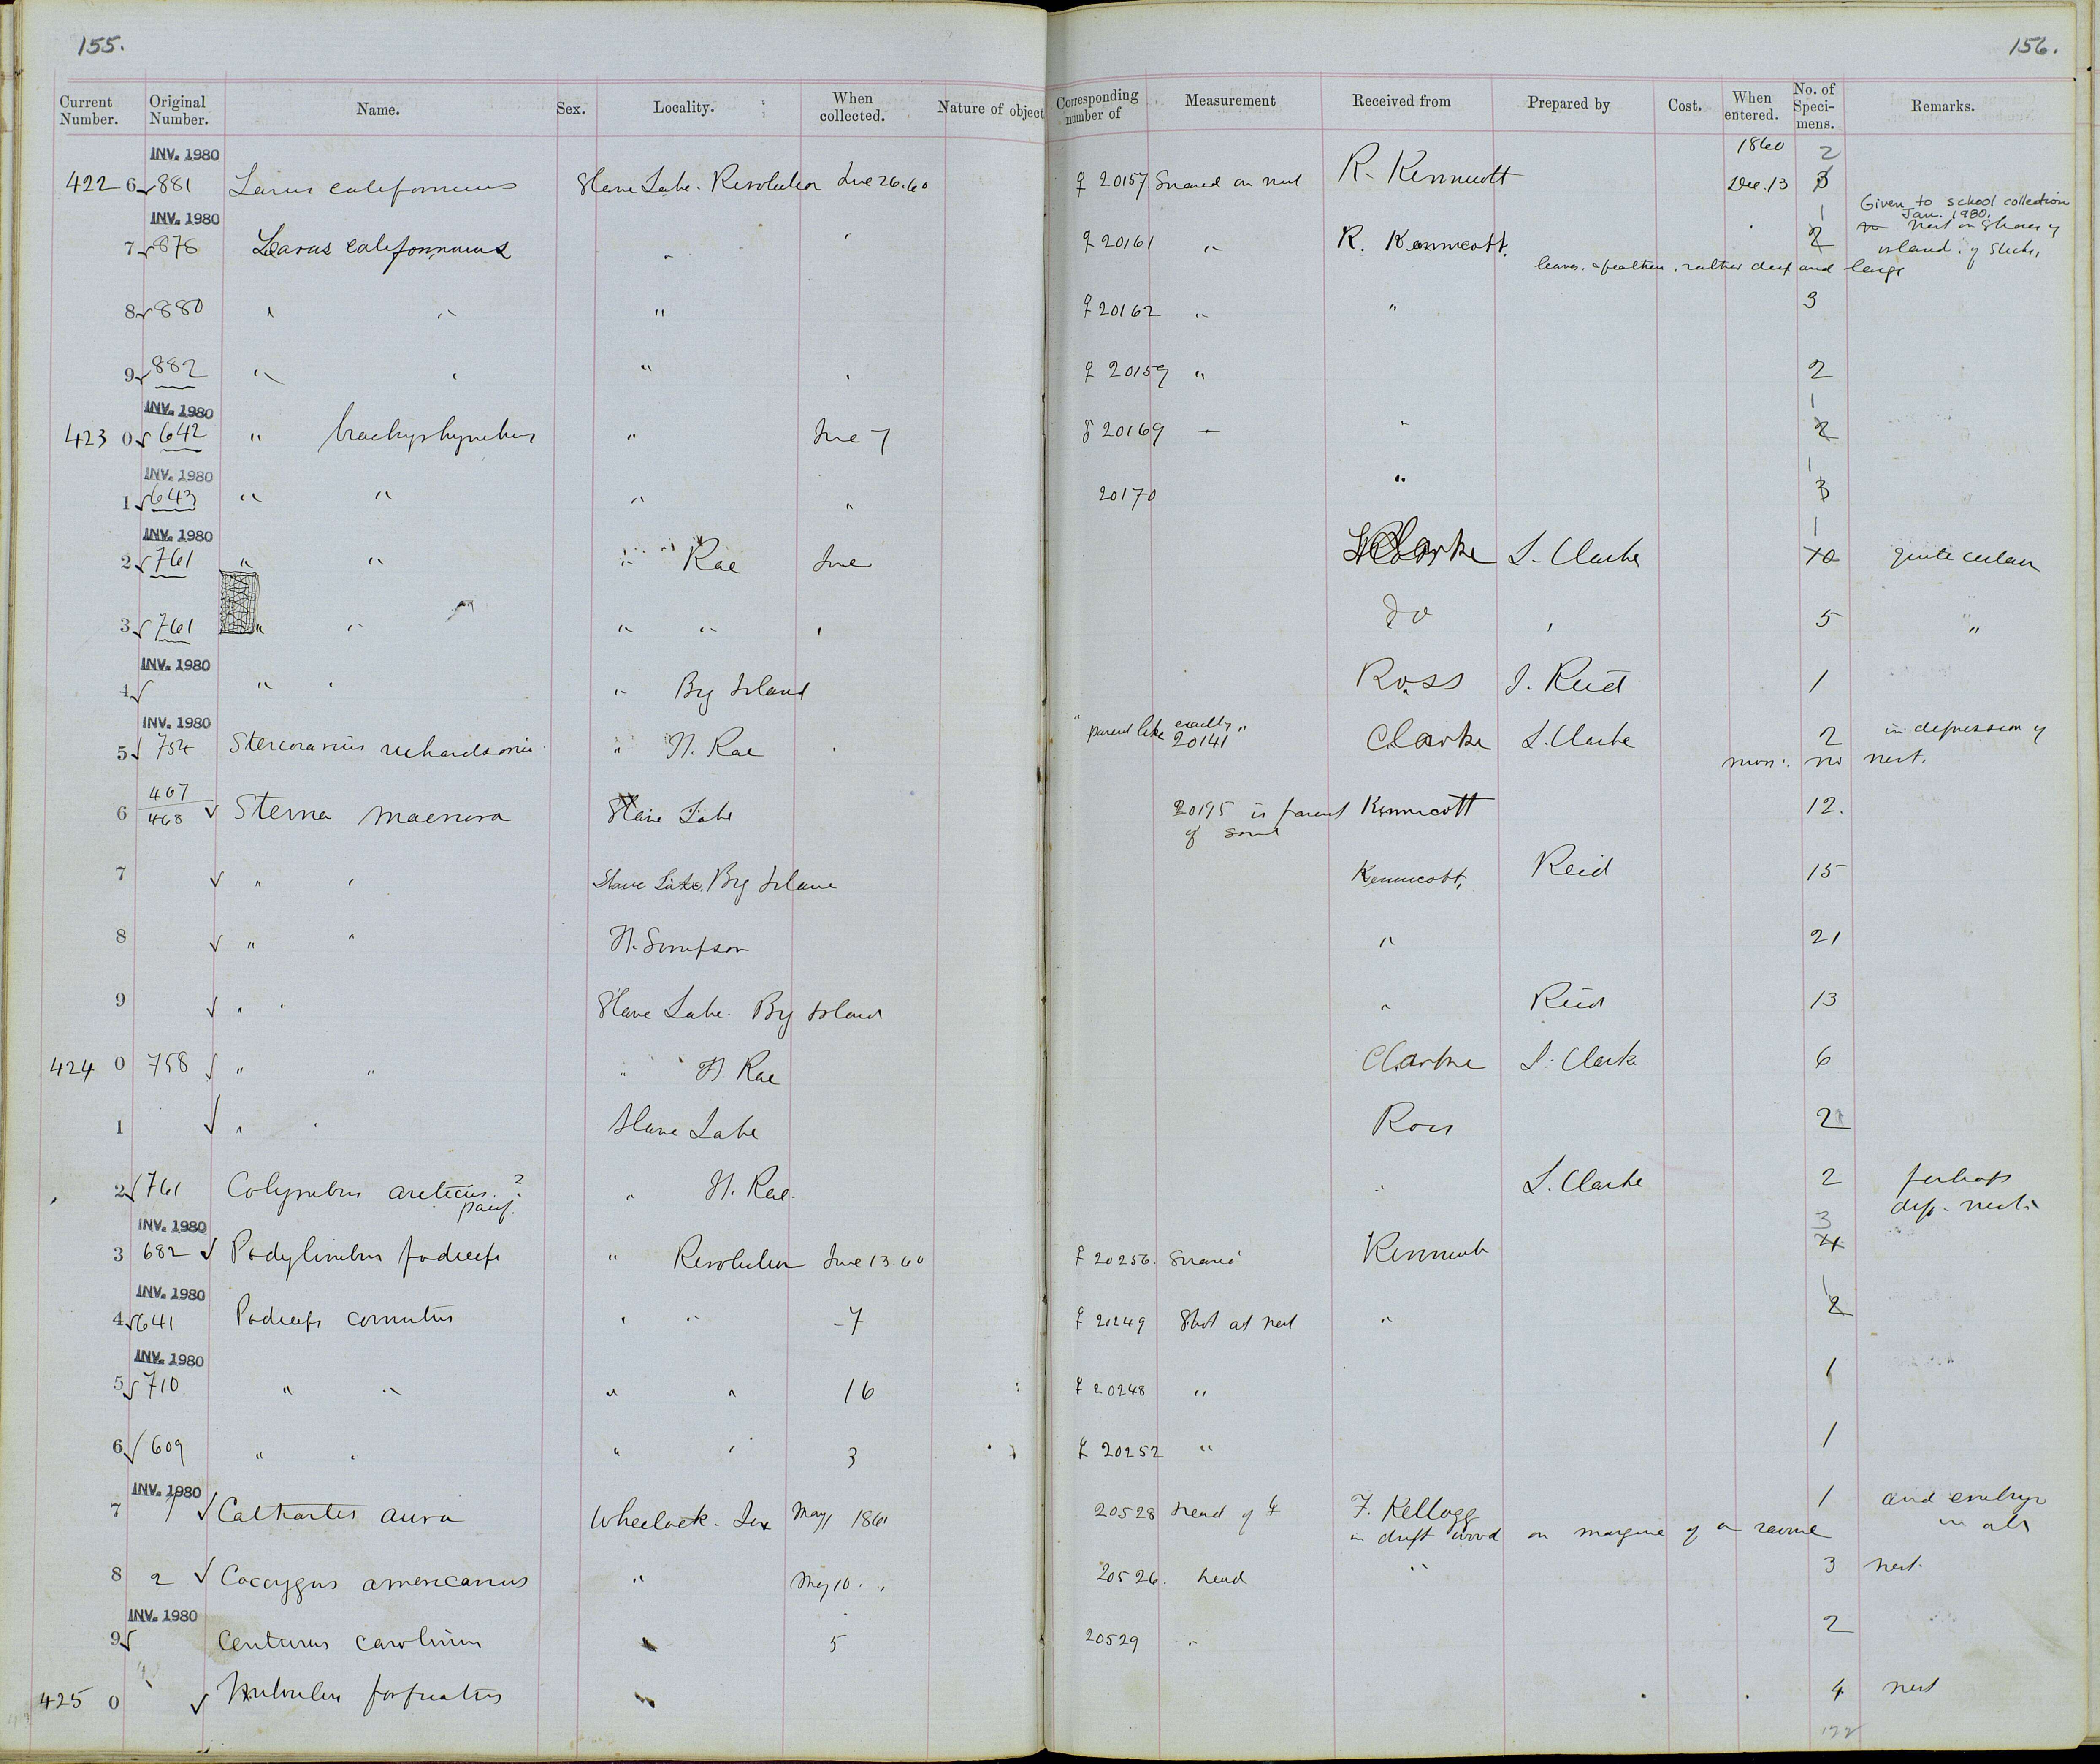 155.
156.
Current Number. Original Number. Name. Sex. Locality. When collected. Nature of object
Corresponding number of Measurement Received from Prepared by Cost. When entered. No. of Specimens. Remarks.
INV. 1980 1860 2
422 6 881 Larus californicus Slave Lake. Resolution June 26. 60 ♀ 20157 Snared on nest R. Kennicott Dec. 13 3
INV. 1980 1 Given to school collection Jan. 1980.
7 878 Larus californicus " ♀ 20161 " R. Kennicott. 2 Nest on shores of island. of sticks,
leaves. & feathers, rather deep and large
8 880 " " " ♀ 20162 " " 3
9 882 " " " ♀ 20159 " 2
INV. 1980 1
423 0 642 " brachyrhynchus " June 7 20169 " " 2
INV. 1980 1
1 643 " " " " 20170 " 3
INV. 1980 1
2 761 " " " Rae June Clarke L. Clarke 10
3 761 " " " " " do " 5 "
INV. 1980
4 " " " Big Island Ross J. Reid 1
INV. 1980
5 754 Stercorarius richardsonii " H. Rae " parent like exactly 20141 " Clarke L. Clarke 2 in depression of
moss. no nest.
6 467/468 Sterna macrura Slave Lake 20195 is parent of some Kennicott 12.
7 " " Slave Lake. Big Island Kennicott, Reid 15
8 " " H. Simpson " 21
9 " " Slave Lake. Big Island " Reid 13
424 0 758 " " " H. Rae Clarke L. Clarke 6
1 " " Slave Lake Ross 2
2 761 Colymbus arcticus. ? pacif. " H. Rae. " L. Clarke 2 perhaps
diff. nests
INV. 1980 3
3 682 Podylimbus podiceps " Resolution June 13. 60 ♀ 20256. Snared Kennicott 4
INV. 1980 1
4 641 Podiceps cornutus " " 7 ♀ 20249 Shot at nest " 2
INV. 1980
5 710 " " " " 16 ♀ 20248 " 1
6 609 " " " " 3 ♀ 20252 " 1
INV. 1980
7 1 Cathartes aura Wheelock. Tex May 1861 20528 head of ♀ F. Kellogg 1 and embryo in alc
in drift wood on margine of a ravine
8 2 Coccygus americanus " May 10. " 20526. head " 3 nest
INV. 1980
9 Centurus carolinus " 5 20529 " 2
425 0 Milvulus forficatus " 4 nest
122